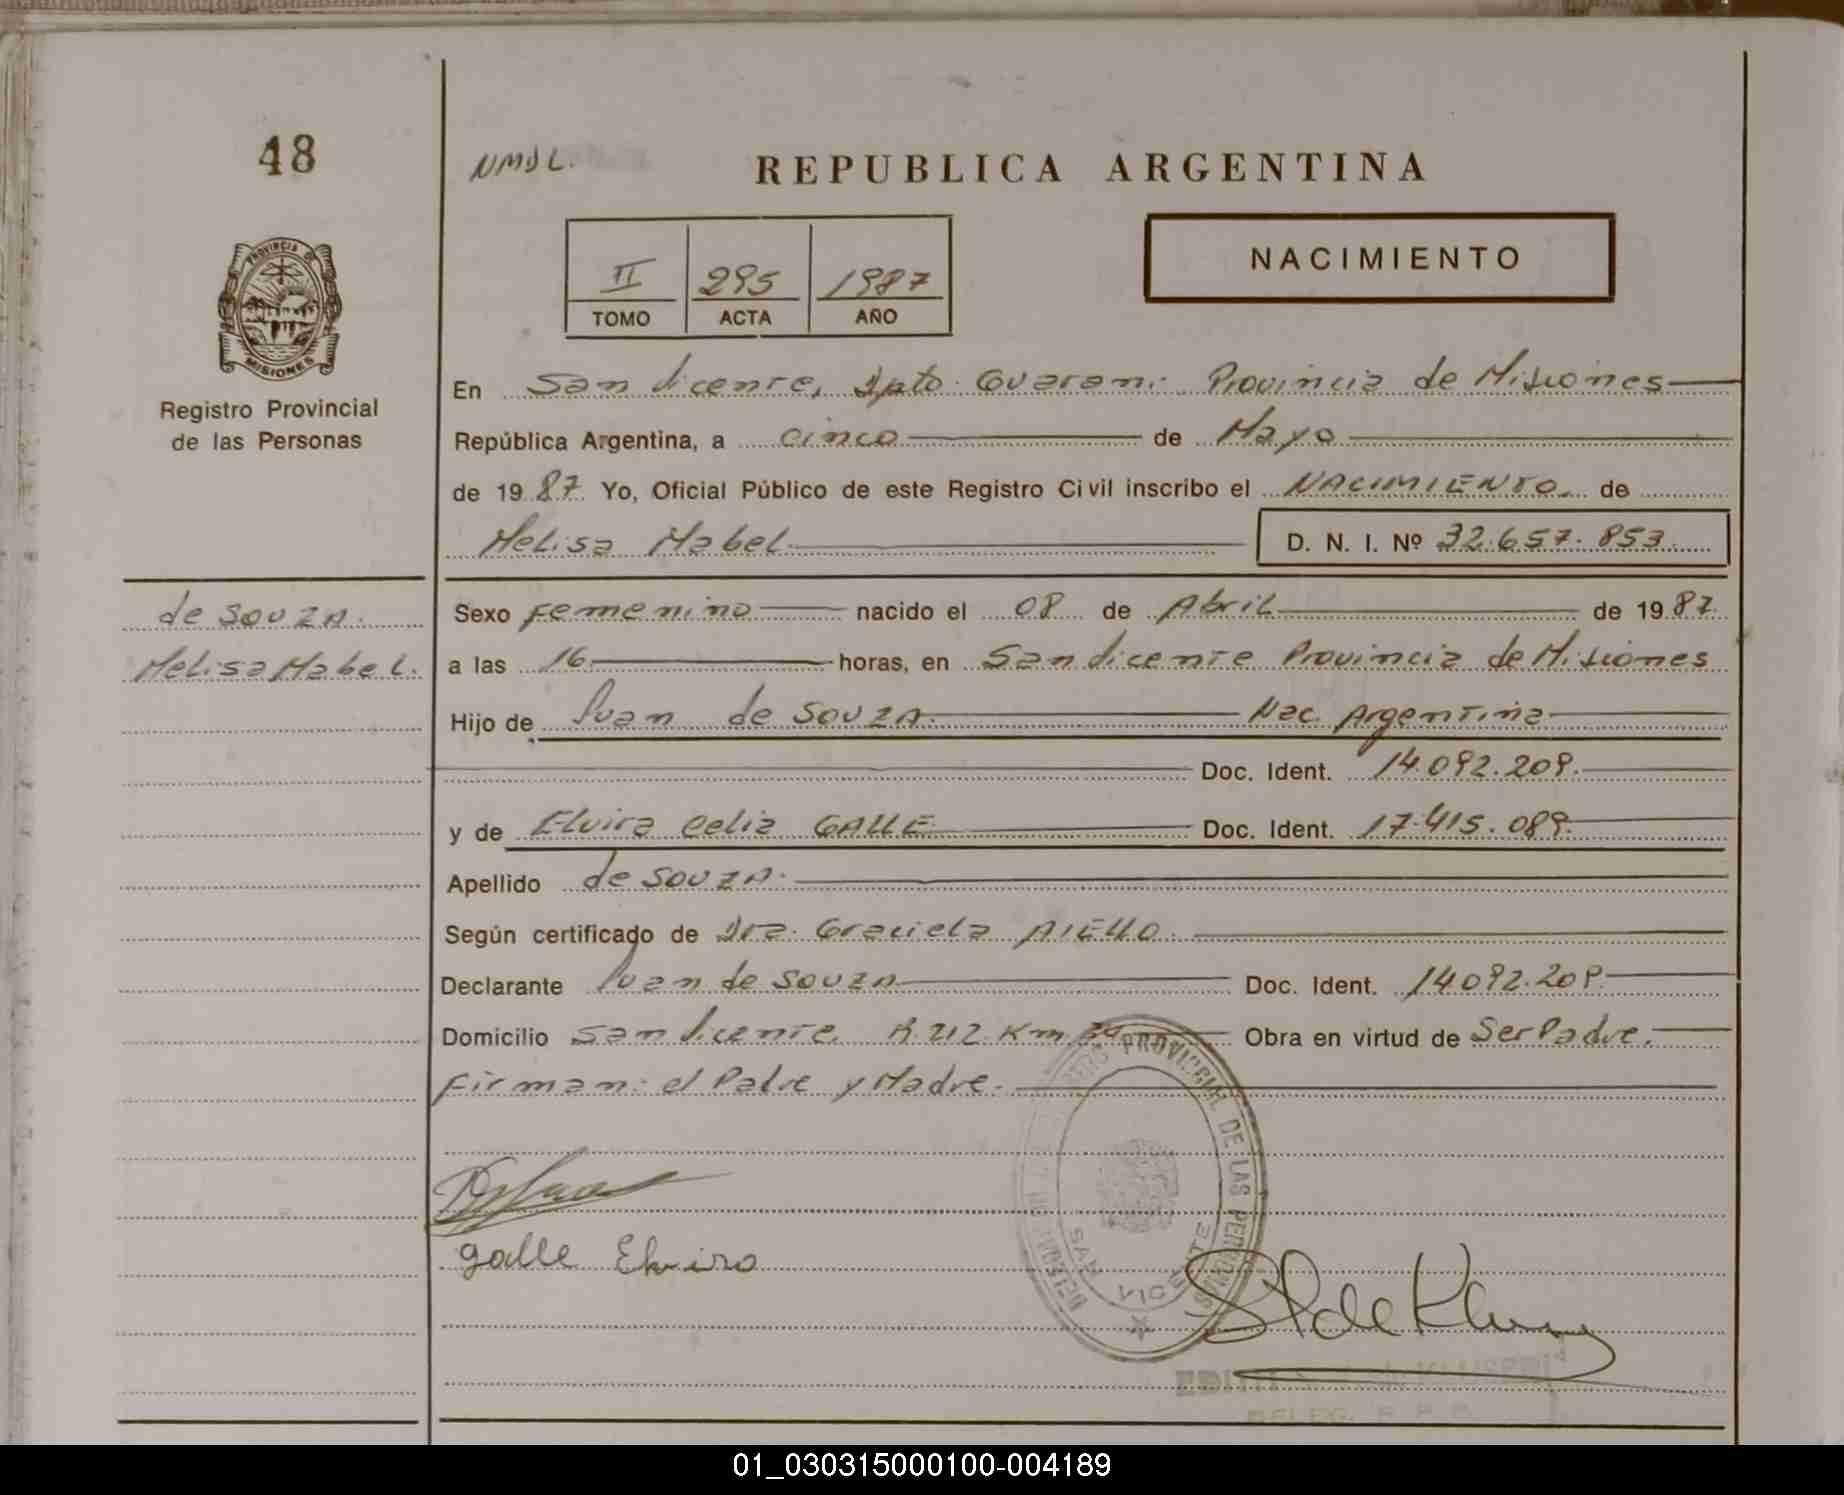 48
NMDL.
REPUBLICA ARGENTINA
II 295 1987
TOMO ACTA AÑO
NACIMIENTO
PROVINCIA DE
MISIONES
Registro Provincial
de las Personas
En San Vicente, Dpto. Guaraní Provincia de Misiones
República Argentina, a cinco de Mayo
de 1987. Yo, Oficial Público de este Registro Civil inscribo el NACIMIENTO de
Melisa Mabel D. N. I. Nº 32.657.853
de SOUZA.
Melisa Mabel.
Sexo Femenino nacido el 08 de Abril de 1987.
a las 16 horas, en San Vicente Provincia de Misiones
Hijo de Juan de SOUZA. Nac. Argentina
Doc. Ident. 14.092.209.
y de Elvira Celia GALLE Doc. Ident. 17.415.089.
Apellido de SOUZA.
Según certificado de Dra. Graciela AIELLO.
Declarante Juan de SOUZA Doc. Ident. 14.092.209.
Domicilio San Vicente. R.212. Km. 34 Obra en virtud de Ser Padre.
Firman: el Padre y Madre.
PROVINCIAL DE LAS PERSONAS
SAN VICENTE
galle Elvira
DELEG. R. P. P.
01_030315000100-004189